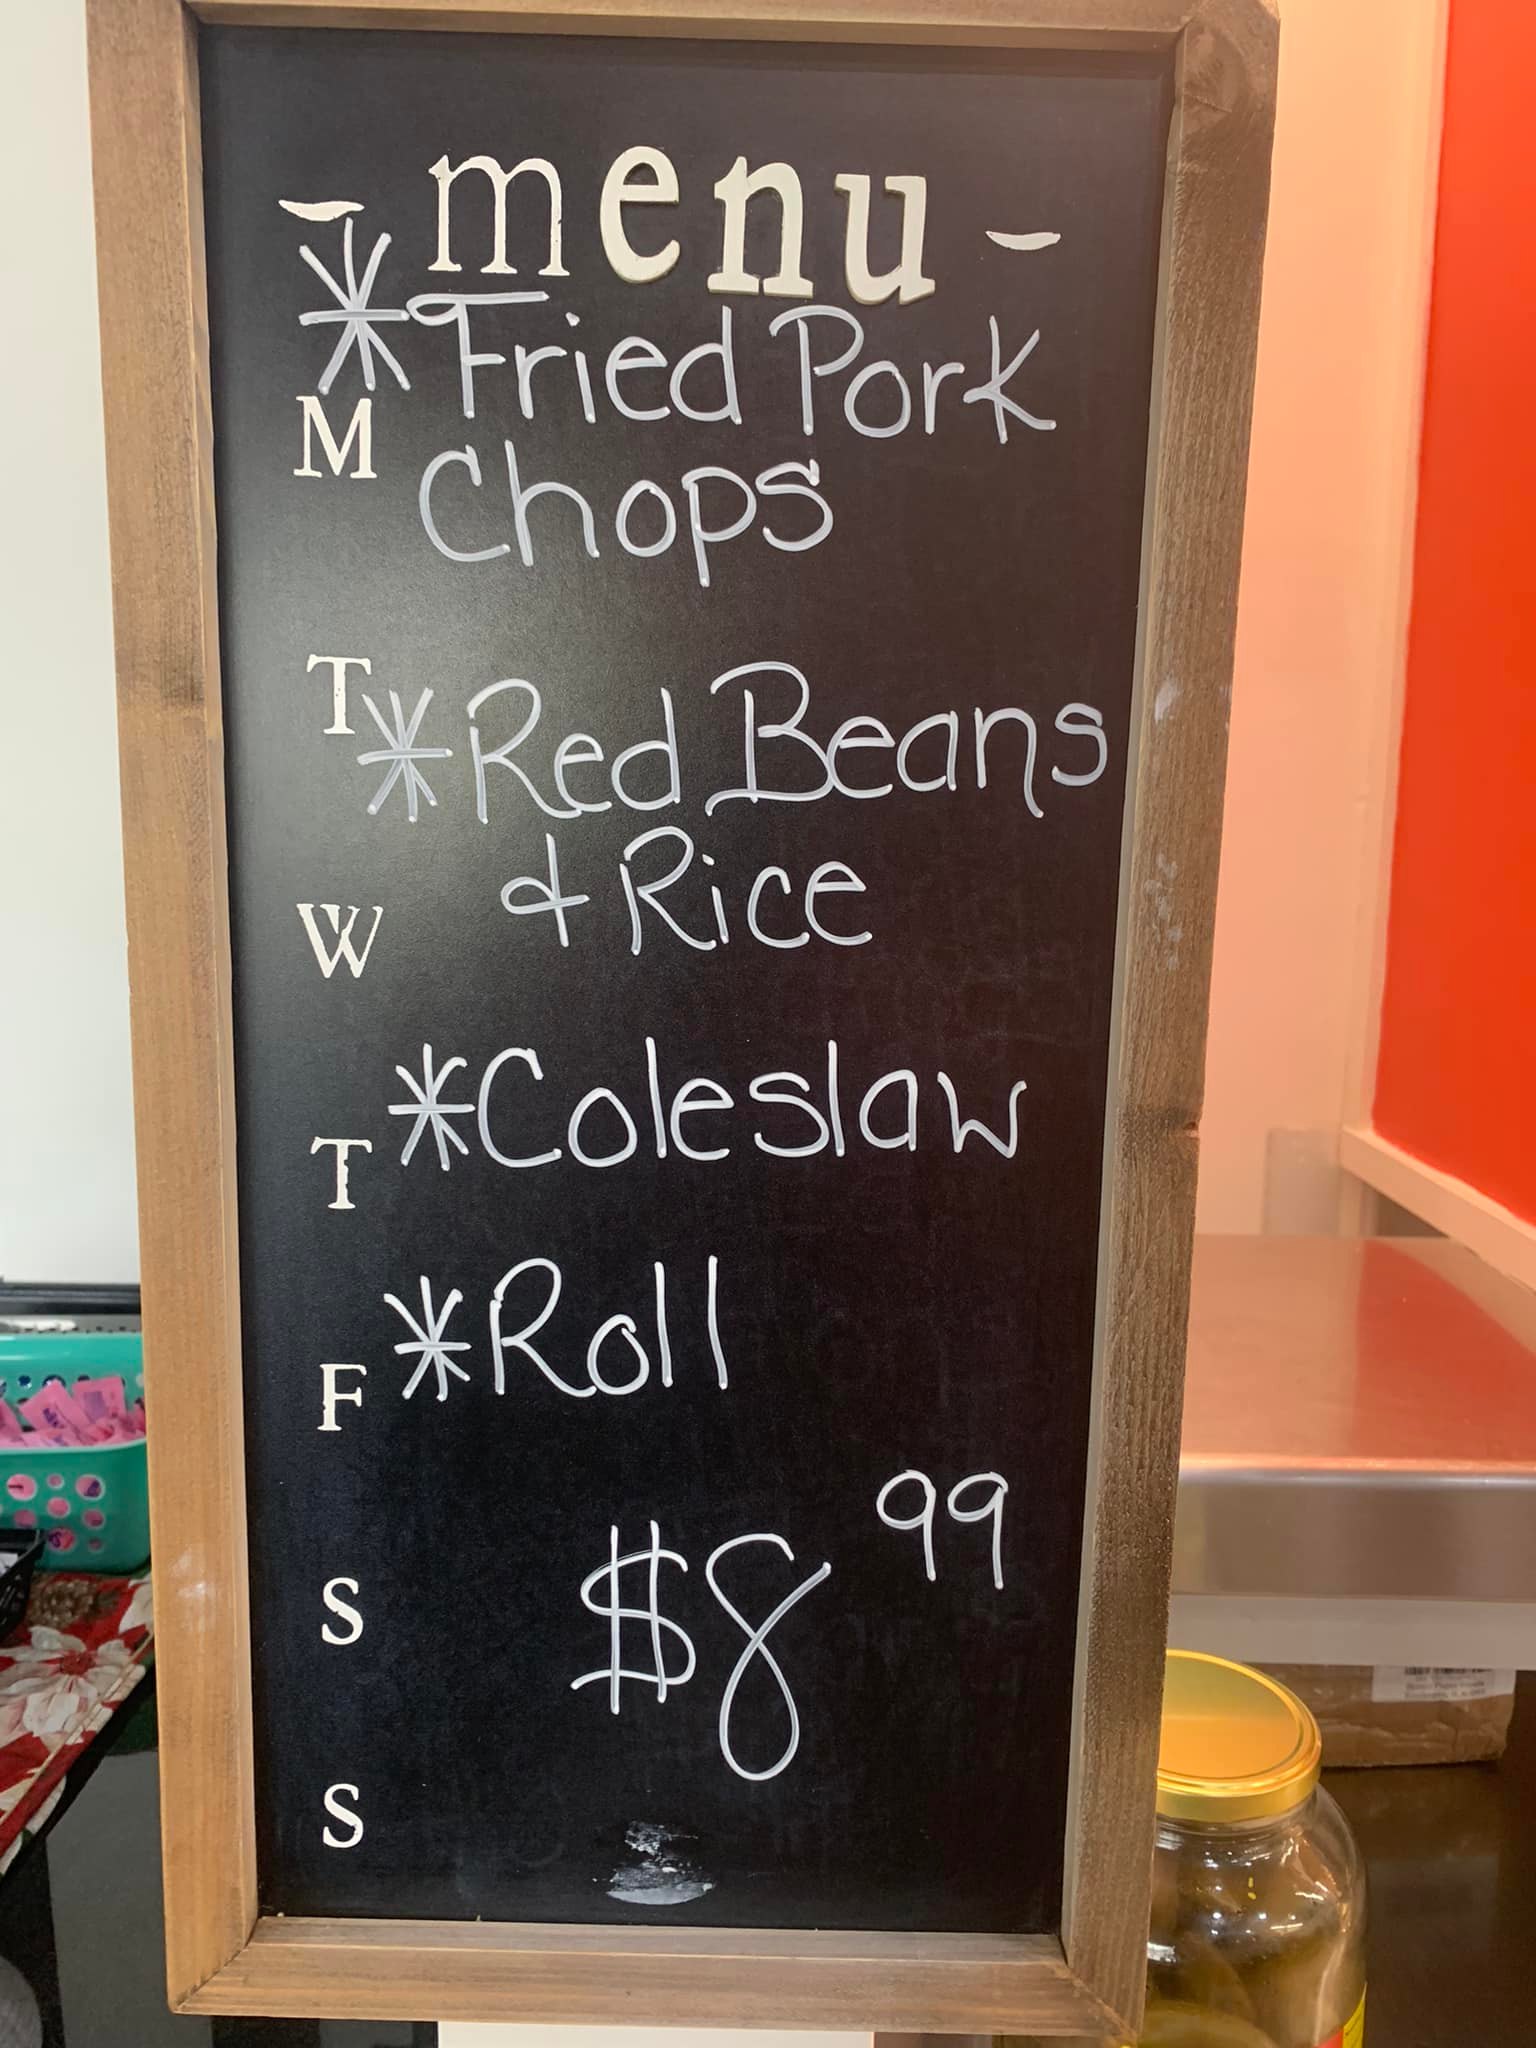 - menu -
* Fried Pork
M
Chops
T
* Red Beans
& Rice
W
* Coleslaw
T
* Roll
F
$8 99
S
S